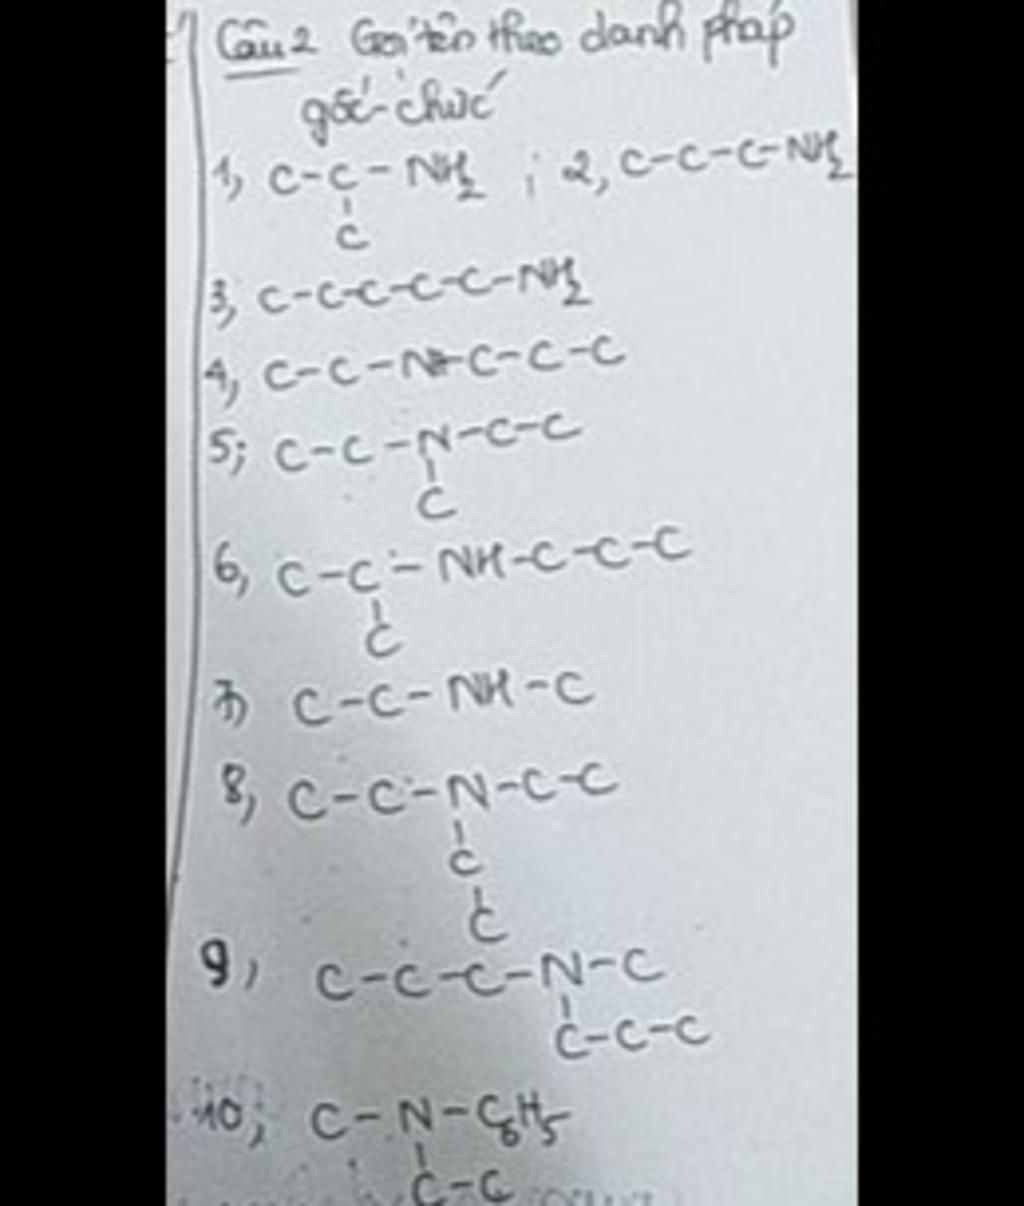 Câu 2 Gọi tên theo danh pháp
gốc-chức
1, C-C-NH2 ; 2, C-C-C-NH2
C
3, C-C-C-C-C-NH2
4, C-C-N-C-C-C
5; C-C-N-C-C
C
6, C-C-NH-C-C-C
C
7) C-C-NH-C
8, C-C-N-C-C
C
C
9, C-C-C-N-C
C-C-C
10; C-N-C6H5
C-C